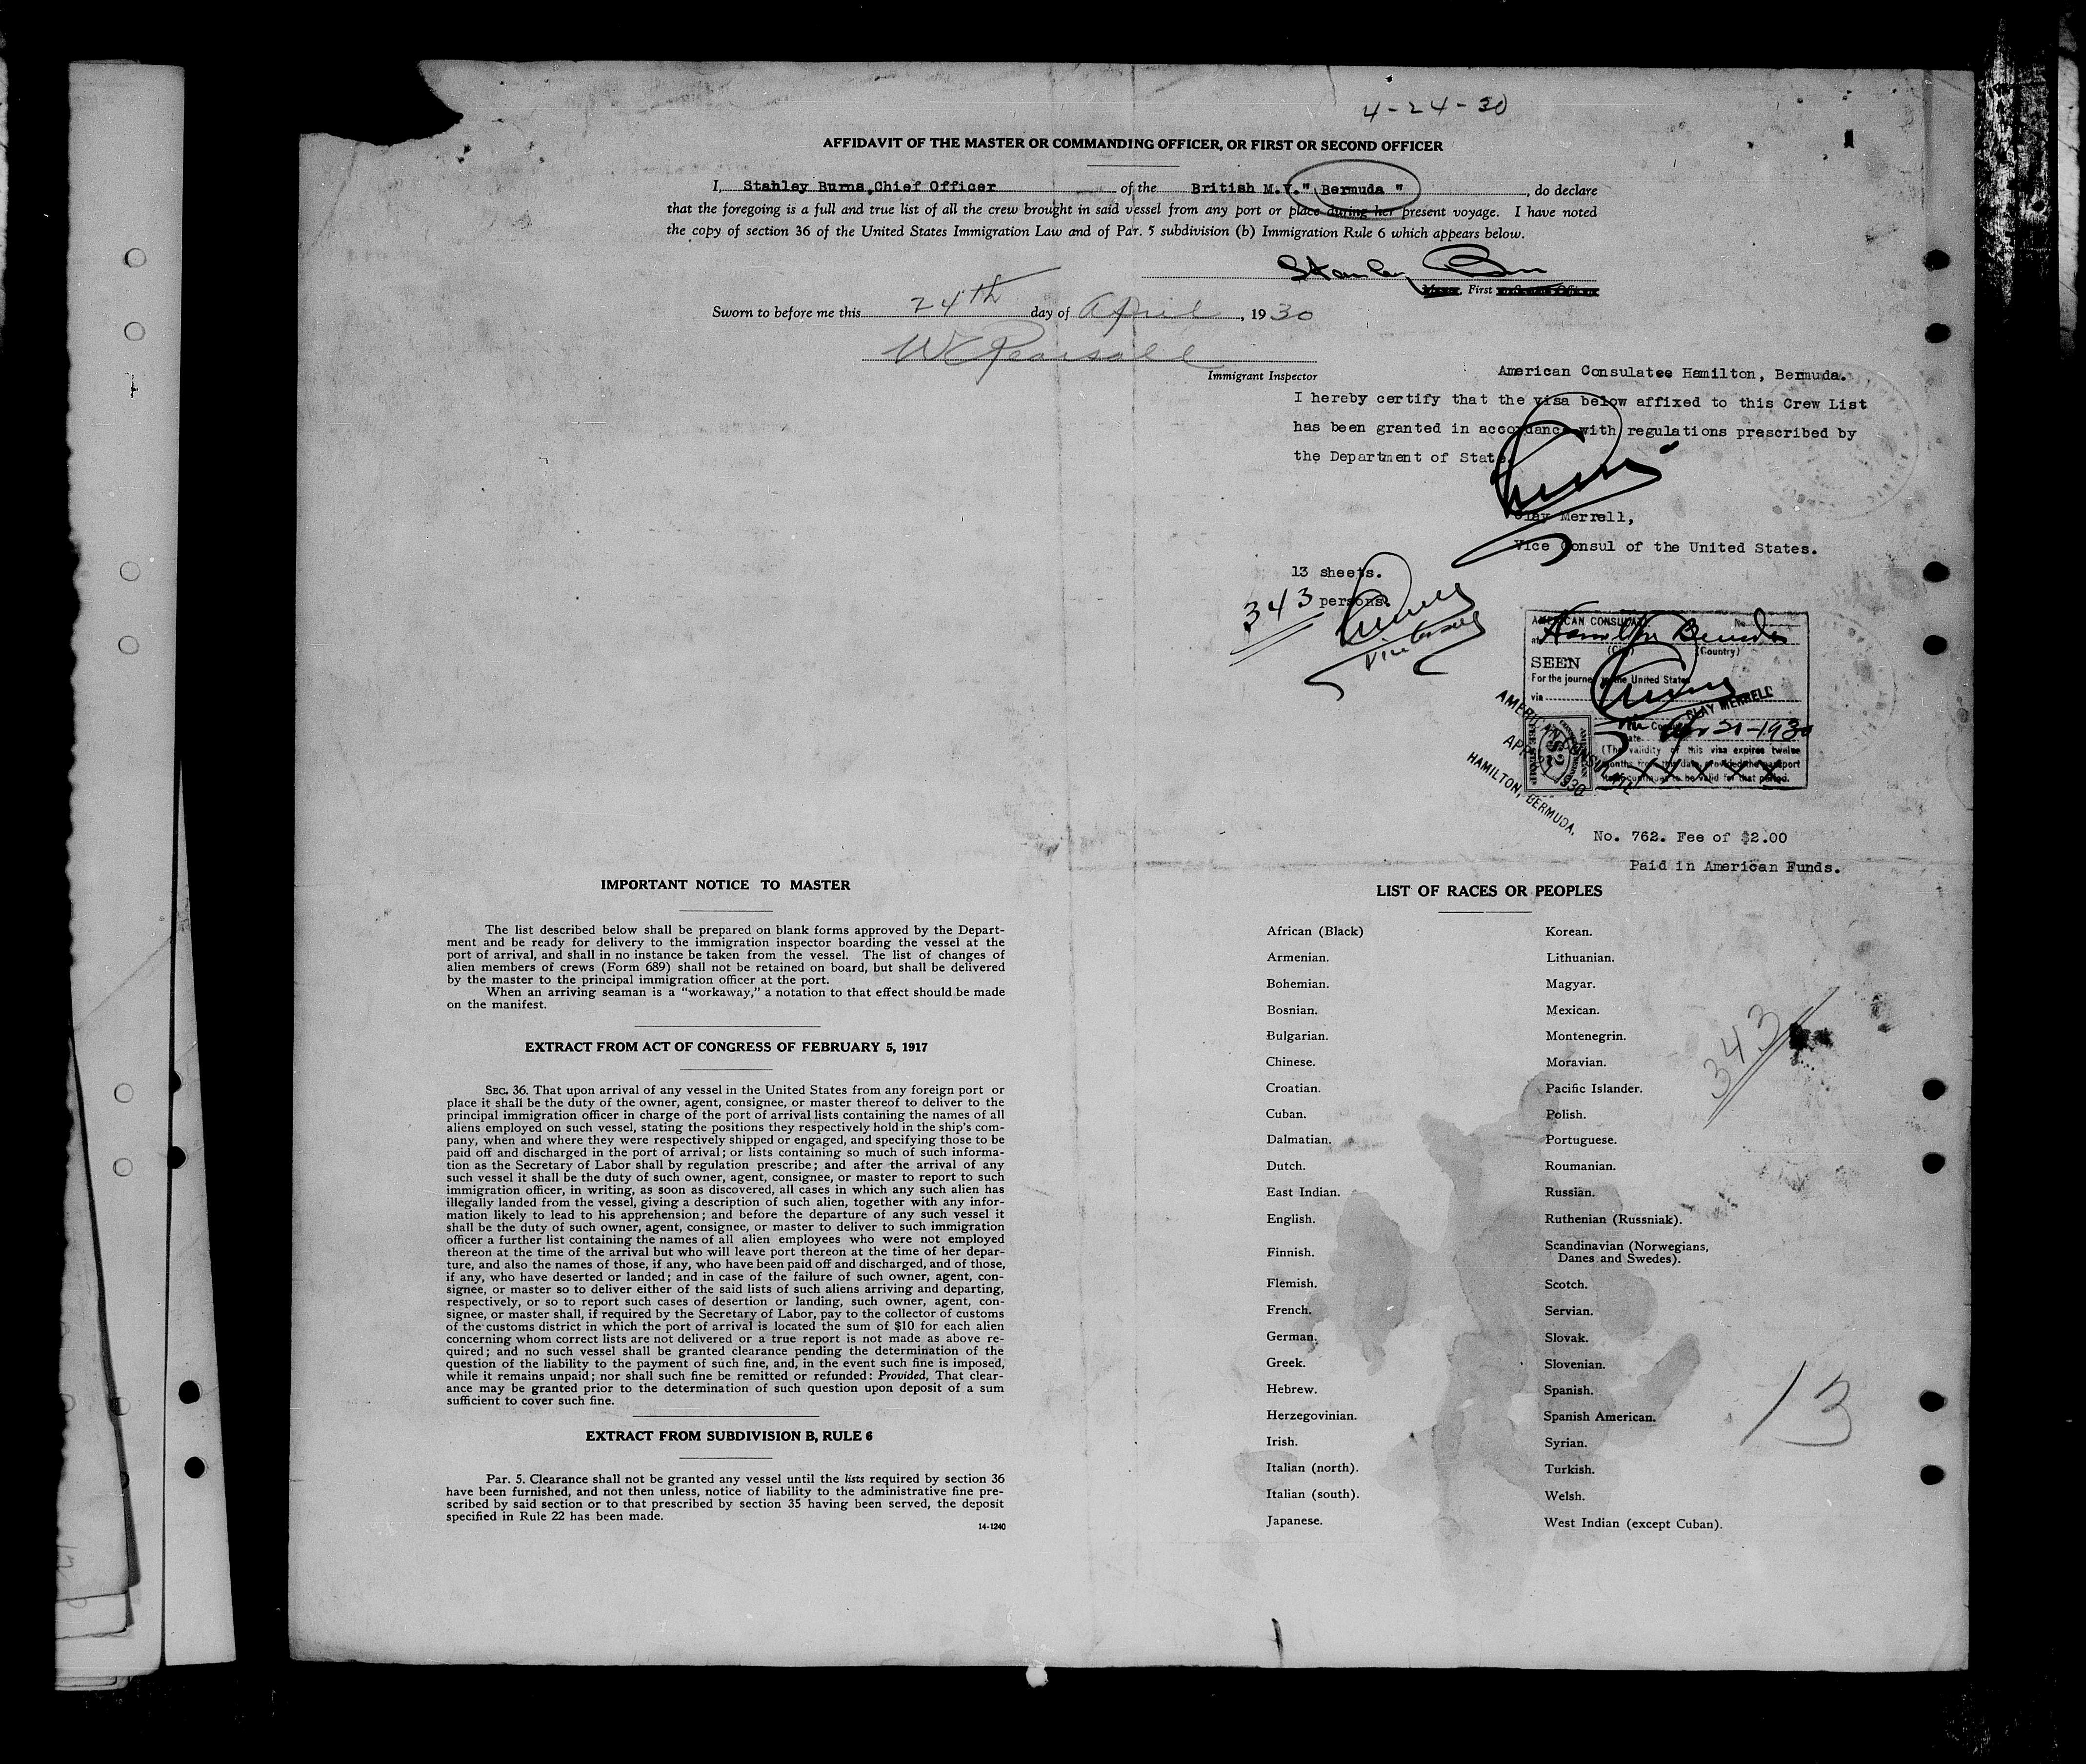 4-24-30
AFFIDAVIT OF THE MASTER OR COMMANDING OFFICER, OR FIRST OR SECOND OFFICER
I, Stanley Burns, Chief Officer of the British M.V. " Bermuda ", do declare
that the foregoing is a full and true list of all the crew brought in said vessel from any port or place during her present voyage. I have noted
the copy of section 36 of the United States Immigration Law and of Par. 5 subdivision (b) Immigration Rule 6 which appears below.
Stanley Burns
First
Sworn to before me this 24th day of April, 1930
W Pearsall
Immigrant Inspector
American Consulatee Hamilton, Bermuda.
I hereby certify that the visa below affixed to this Crew List
has been granted in accordance with regulations prescribed by
the Department of State.
Clay Merrell,
Vice Consul of the United States.
13 sheets.
343 persons.
Vice Consul
AMERICAN CONSULATE No.
at Hamilton Bermuda
(City) (Country)
SEEN
For the journey to the United States
via
CLAY MERRELL
Date Apr 21-1930
(The validity of this visa expires twelve
months from this date, provided the passport
continues to be valid for that period.
AMERICAN CONSULATE
APR 21 1930
HAMILTON, BERMUDA.
$2
No. 762. Fee of $2.00
Paid in American Funds.
IMPORTANT NOTICE TO MASTER
The list described below shall be prepared on blank forms approved by the Depart-
ment and be ready for delivery to the immigration inspector boarding the vessel at the
port of arrival, and shall in no instance be taken from the vessel. The list of changes of
alien members of crews (Form 689) shall not be retained on board, but shall be delivered
by the master to the principal immigration officer at the port.
When an arriving seaman is a "workaway," a notation to that effect should be made
on the manifest.
EXTRACT FROM ACT OF CONGRESS OF FEBRUARY 5, 1917
SEC. 36. That upon arrival of any vessel in the United States from any foreign port or
place it shall be the duty of the owner, agent, consignee, or master thereof to deliver to the
principal immigration officer in charge of the port of arrival lists containing the names of all
aliens employed on such vessel, stating the positions they respectively hold in the ship's com-
pany, when and where they were respectively shipped or engaged, and specifying those to be
paid off and discharged in the port of arrival; or lists containing so much of such informa-
tion as the Secretary of Labor shall by regulation prescribe; and after the arrival of any
such vessel it shall be the duty of such owner, agent, consignee, or master to report to such
immigration officer, in writing, as soon as discovered, all cases in which any such alien has
illegally landed from the vessel, giving a description of such alien, together with any infor-
mation likely to lead to his apprehension; and before the departure of any such vessel it
shall be the duty of such owner, agent, consignee, or master to deliver to such immigration
officer a further list containing the names of all alien employees who were not employed
thereon at the time of the arrival but who will leave port thereon at the time of her depar-
ture, and also the names of those, if any, who have been paid off and discharged, and of those,
if any, who have deserted or landed; and in case of the failure of such owner, agent, con-
signee, or master so to deliver either of the said lists of such aliens arriving and departing,
respectively, or so to report such cases of desertion or landing, such owner, agent, con-
signee, or master shall, if required by the Secretary of Labor, pay to the collector of customs
of the customs district in which the port of arrival is located the sum of $10 for each alien
concerning whom correct lists are not delivered or a true report is not made as above re-
quired; and no such vessel shall be granted clearance pending the determination of the
question of the liability to the payment of such fine, and, in the event such fine is imposed,
while it remains unpaid; nor shall such fine be remitted or refunded: Provided, That clear-
ance may be granted prior to the determination of such question upon deposit of a sum
sufficient to cover such fine.
EXTRACT FROM SUBDIVISION B, RULE 6
Par. 5. Clearance shall not be granted any vessel until the lists required by section 36
have been furnished, and not then unless, notice of liability to the administrative fine pre-
scribed by said section or to that prescribed by section 35 having been served, the deposit
specified in Rule 22 has been made.
14-1240
LIST OF RACES OR PEOPLES
African (Black)
Armenian.
Bohemian.
Bosnian.
Bulgarian.
Chinese.
Croatian.
Cuban.
Dalmatian.
Dutch.
East Indian.
English.
Finnish.
Flemish.
French.
German.
Greek.
Hebrew.
Herzegovinian.
Irish.
Italian (north).
Italian (south).
Japanese.
Korean.
Lithuanian.
Magyar.
Mexican.
Montenegrin.
Moravian.
Pacific Islander.
Polish.
Portuguese.
Roumanian.
Russian.
Ruthenian (Russniak).
Scandinavian (Norwegians,
Danes and Swedes).
Scotch.
Servian.
Slovak.
Slovenian.
Spanish.
Spanish American.
Syrian.
Turkish.
Welsh.
West Indian (except Cuban).
343
13